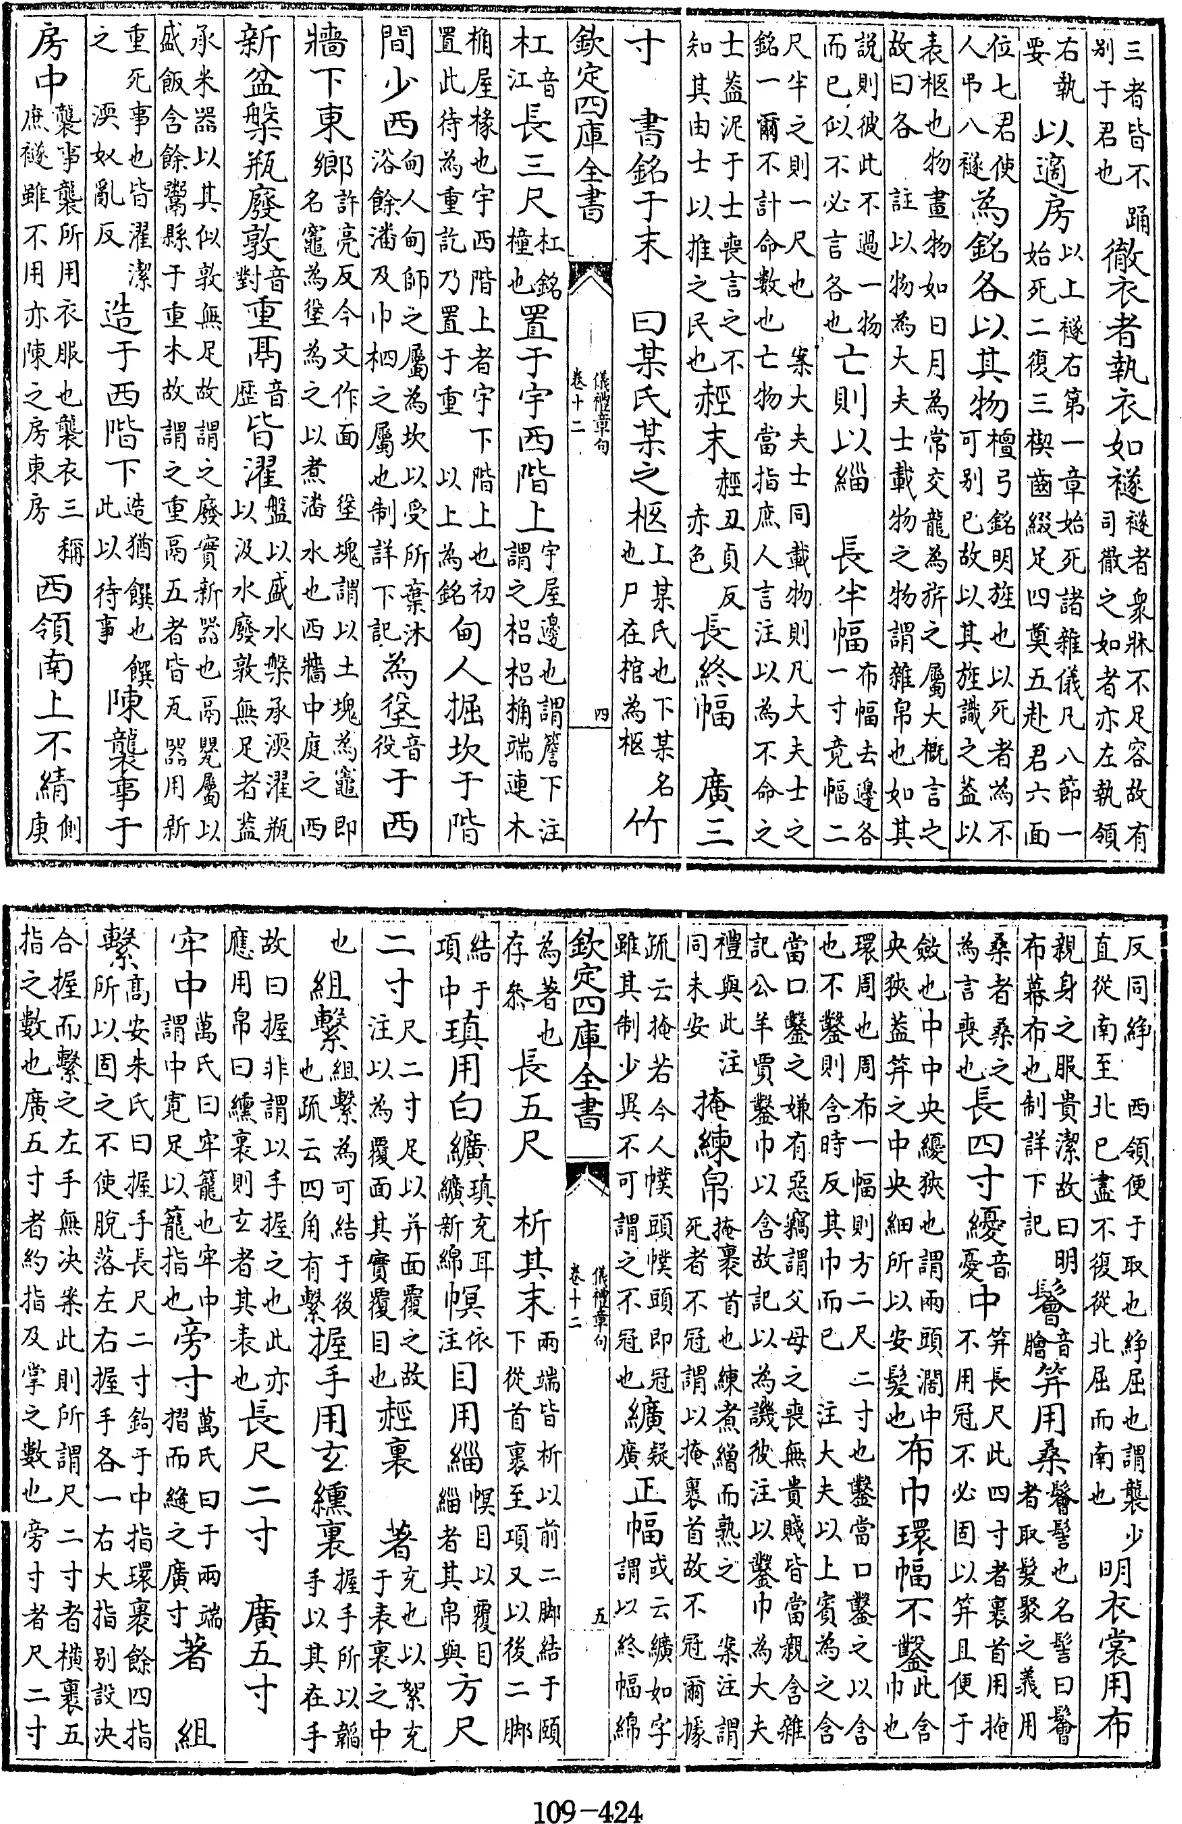 三者皆不踊别于君也徹衣者執衣如襚襚者衆牀不足容故有司徹之如者亦左執領
右執要以適房以上襚右第一章始死諸雜儀凡八節一始死二復三楔齒綴足四奠五赴君六面
位七君使人弔八襚為銘各以其物檀弓銘明旌也以死者為不可别已故以其旌識之葢以
表柩也物畫物如日月為常交龍為旂之屬大概言之故曰各 註以物為大夫士載物之物謂雜帛也如其
說則彼此不過一物而已似不必言各也亡則以緇 長半幅布幅去邊各一寸竟幅二
尺半之則一尺也 案大夫士同載物則凡大夫士之銘一爾不計命數也亡物當指庶人言注以為不命之
士葢泥于士喪言之不知其由士以推之民也赬末赬丑貞反赤色長終幅 廣三
寸 書銘于末 曰某氏某之柩上某氏也下某名也尸在棺為柩竹
欽定四庫全書 儀禮章句 卷十二 四
杠音江長三尺杠銘橦也置于宇西階上宇屋邊也謂簷下注謂之梠梠桷端連木
桷屋椽也宇西階上者宇下階上也初置此待為重訖乃置于重 以上為銘甸人掘坎于階
間少西甸人甸師之屬為坎以受所棄沐浴餘潘及巾柶之屬也制詳下記為垼音役于西
牆下東鄉許亮反今文作面 垼塊謂以土塊為竈即名竈為垼為之以煮潘水也西牆中庭之西
新盆槃瓶廢敦音對重鬲音歷皆濯盤以盛水槃承渜濯瓶以汲水廢敦無足者葢
承米器以其似敦無足故謂之廢實新器也鬲甖屬以盛飯含餘鬻縣于重木故謂之重鬲五者皆瓦器用新
重死事也皆濯潔之 渜奴亂反造于西階下造猶饌也饌此以待事陳襲事于
房中襲事襲所用衣服也襲衣三稱庶襚雖不用亦陳之房東房西領南上不綪側庚
反同絣 西領便于取也絣屈也謂襲少直從南至北已盡不復從北屈而南也明衣裳用布
親身之服貴潔故曰明布幕布也制詳下記鬠音膾笄用桑鬠髻也名髻曰鬠者取髮聚之義用
桑者桑之為言喪也長四寸纋音憂中笄長尺此四寸者裹首用掩不用冠不必固以笄且便于
斂也中中央纋狹也謂兩頭濶中央狹葢笄之中央細所以安髮也布巾環幅不鑿此含巾也
環周也周布一幅則方二尺二寸也鑿當口鑿之以含也不鑿則含時反其巾而已 注大夫以上賓為之含
當口鑿之嫌有惡竊謂父母之喪無貴賤皆當親含雜記公羊賈鑿巾以含故記以為譏彼注以鑿巾為大夫
禮與此注同未安掩練帛掩裹首也練煮繒而熟之 案注謂死者不冠謂以掩裹首故不冠爾據
疏云掩若今人幞頭幞頭即冠疑雖其制少異不可謂之不冠也纊廣正幅或云纊如字謂以終幅綿
欽定四庫全書 儀禮章句 卷十二 五
為著也存叅長五尺 析其末兩端皆析以前二脚結于頤下從首裹至項又以後二脚
結于項中瑱用白纊瑱充耳纊新綿幎依注目用緇幎目以覆目緇者其帛與方尺
二寸尺二寸足以并面覆之故注以為覆面其實覆目也赬裏 著充也以絮充于表裏之中
也組繫組繫為可結于後也疏云四角有繫握手用玄纁裏握手所以韜手以其在手
故曰握非謂以手握之也此亦應用帛曰纁裏則玄者其表也長尺二寸 廣五寸
牢中萬氏曰牢籠也牢中謂中寛足以籠指也旁寸萬氏曰于兩端摺而縫之廣寸著 組
繫高安朱氏曰握手長尺二寸鉤于中指環裹餘四指所以固之不使脫落左右握手各一右大指别設决
合握而繫之左手無决案此則所謂尺二寸者横裹五指之數也廣五寸者約指及掌之數也旁寸者尺二寸
109-424